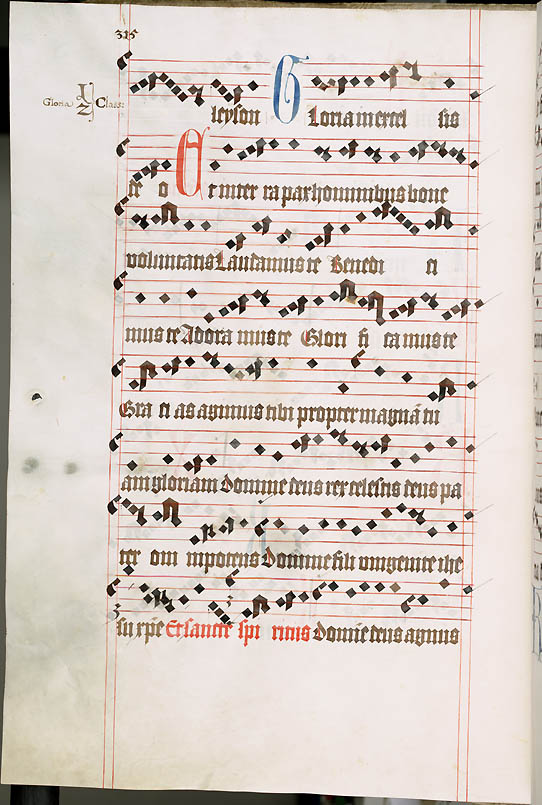 315
Gloria I 2 Class:
leyson Gloria in excel sis
te o Et in ter ra pax hominibus bone
voluntatis Laudamus te Benedi ci
mus te Adora mus te Glori fi camus te
Gra ti as agimus tibi propter magnā tu
am gloriam Domine deus rex celestis deus pa
ter om nipotens Domine fili unigenite ihe
su xpē Et sancte spi ritus Domīe deus agnus